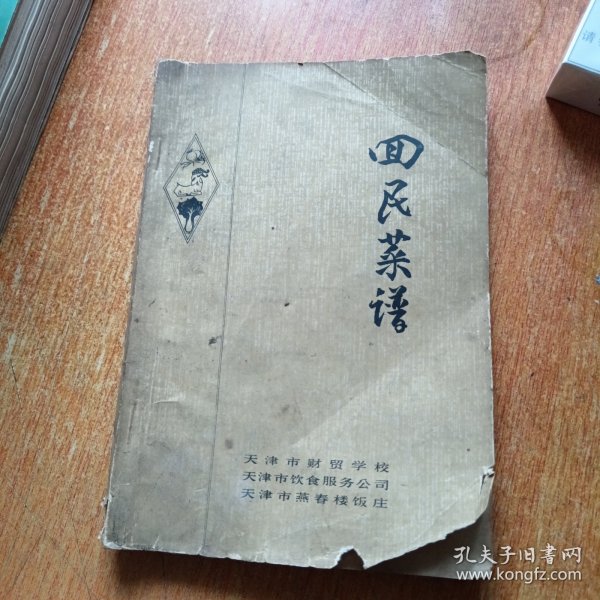 回民菜谱
天津市财贸学校
天津市饮食服务公司
天津市燕春楼饭庄
请
孔夫子旧书网
www.kongfz.com